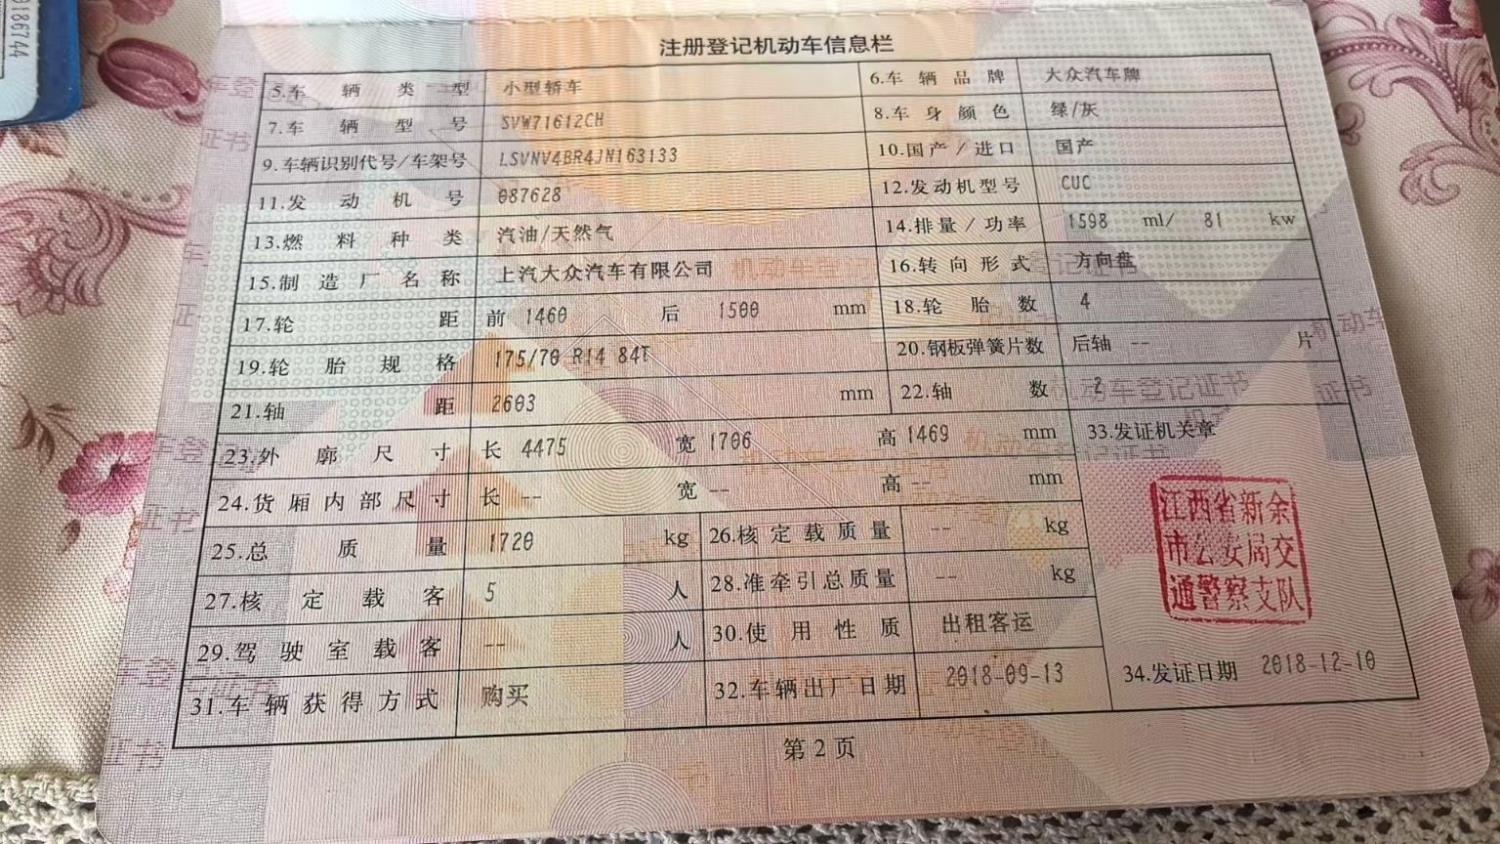 0186744
注册登记机动车信息栏
5.车辆类型 小型轿车 6.车辆品牌 大众汽车牌
7.车辆型号 SVW71612CH 8.车身颜色 绿/灰
9.车辆识别代号/车架号 LSVNV4BR4JN163133 10.国产/进口 国产
11.发动机号 087628 12.发动机型号 CUC
13.燃料种类 汽油/天然气 14.排量/功率 1598 ml/ 81 kw
15.制造厂名称 上汽大众汽车有限公司 16.转向形式 方向盘
17.轮距 前 1460 后 1500 mm 18.轮胎数 4
19.轮胎规格 175/70 R14 84T 20.钢板弹簧片数 后轴 -- 片
21.轴距 2603 mm 22.轴数 2
23.外廓尺寸 长 4475 宽 1706 高 1469 mm 33.发证机关章
24.货厢内部尺寸 长 -- 宽 -- 高 -- mm
25.总质量 1720 kg 26.核定载质量 -- kg
27.核定载客 5 人 28.准牵引总质量 -- kg
29.驾驶室载客 -- 人 30.使用性质 出租客运
31.车辆获得方式 购买 32.车辆出厂日期 2018-09-13 34.发证日期 2018-12-10
江西省新余
市公安局交
通警察支队
第2页